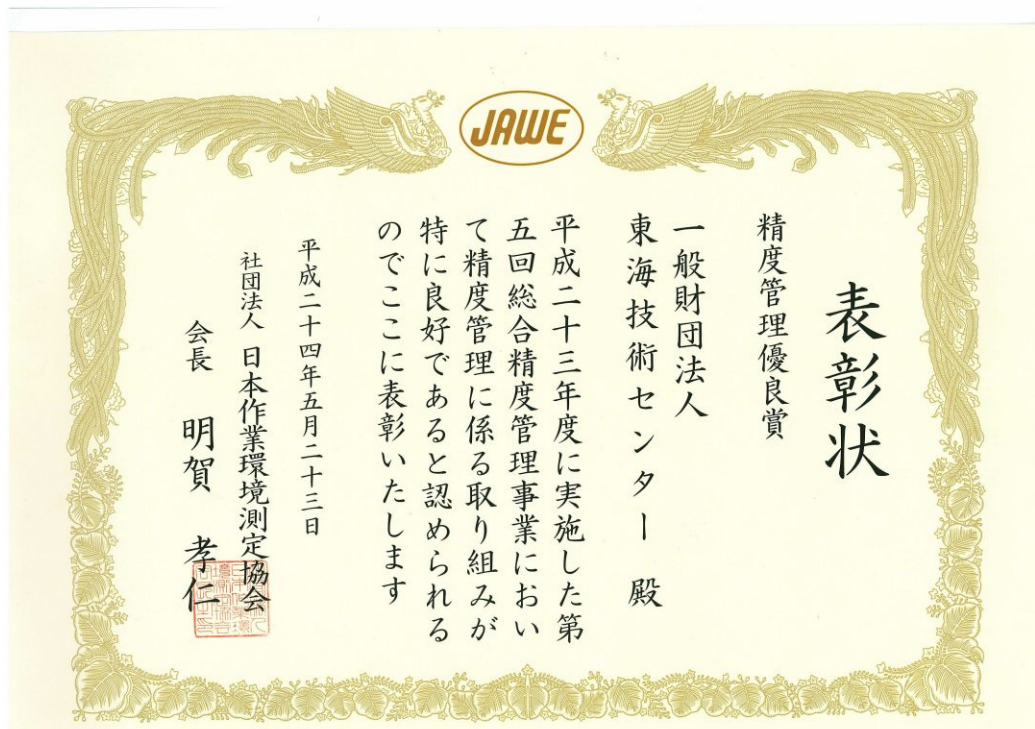 JAWE
表彰状
精度管理優良賞
一般財団法人
東海技術センター 殿
平成二十三年度に実施した第
五回総合精度管理事業におい
て精度管理に係る取り組みが
特に良好であると認められる
のでここに表彰いたします
平成二十四年五月二十三日
社団法人 日本作業環境測定協会
会長 明賀 孝仁